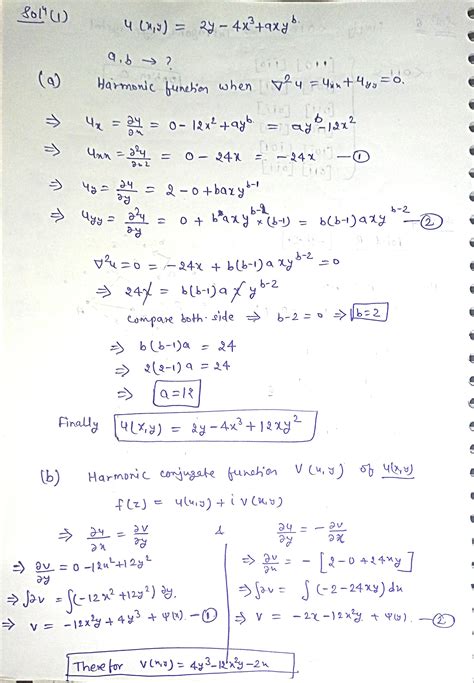 Solⁿ(1) u(x,y) = 2y - 4x³ + axy^b
a, b → ?
(a) Harmonic function when ∇²u = u_xx + u_yy = 0.
⇒ u_x = ∂u/∂x = 0 - 12x² + ay^b = ay^b - 12x²
⇒ u_xx = ∂²u/∂x² = 0 - 24x = -24x —①
⇒ u_y = ∂u/∂y = 2 - 0 + baxy^(b-1)
⇒ u_yy = ∂²u/∂y = 0 + baxy^(b-2) × (b-1) = b(b-1)axy^(b-2) —②
∇²u = 0 = -24x + b(b-1)axy^(b-2) = 0
⇒ 24x = b(b-1)a x y^(b-2)
compare both side ⇒ b-2 = 0 ⇒ b=2
⇒ b(b-1)a = 24
⇒ 2(2-1)a = 24
⇒ a=12
Finally u(x,y) = 2y - 4x³ + 12xy²
(b) Harmonic conjugate function V(x,y) of u(x,y)
f(z) = u(x,y) + i V(x,y)
⇒ ∂u/∂x = ∂v/∂y & ∂u/∂y = -∂v/∂x
⇒ ∂v/∂y = 0 - 12x² + 12y² ⇒ ∂v/∂x = -[2 - 0 + 24xy]
⇒ ∫∂v = ∫(-12x² + 12y²) ∂y. ⇒ ∫∂v = ∫(-2 - 24xy) dx
⇒ v = -12x²y + 4y³ + ψ(x). —① ⇒ v = -2x - 12x²y + ψ(y). —②
Therefor V(x,y) = 4y³ - 12x²y - 2x